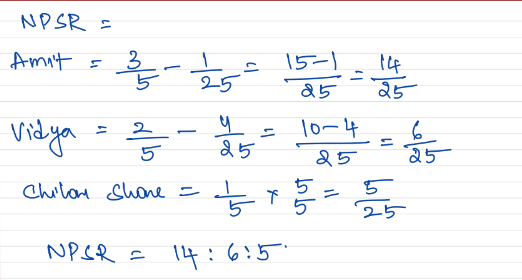 NPSR =
Amit = 3/5 - 1/25 = 15-1/25 = 14/25
Vidya = 2/5 - 4/25 = 10-4/25 = 6/25
Chilam Share = 1/5 × 5/5 = 5/25
NPSR = 14 : 6 : 5